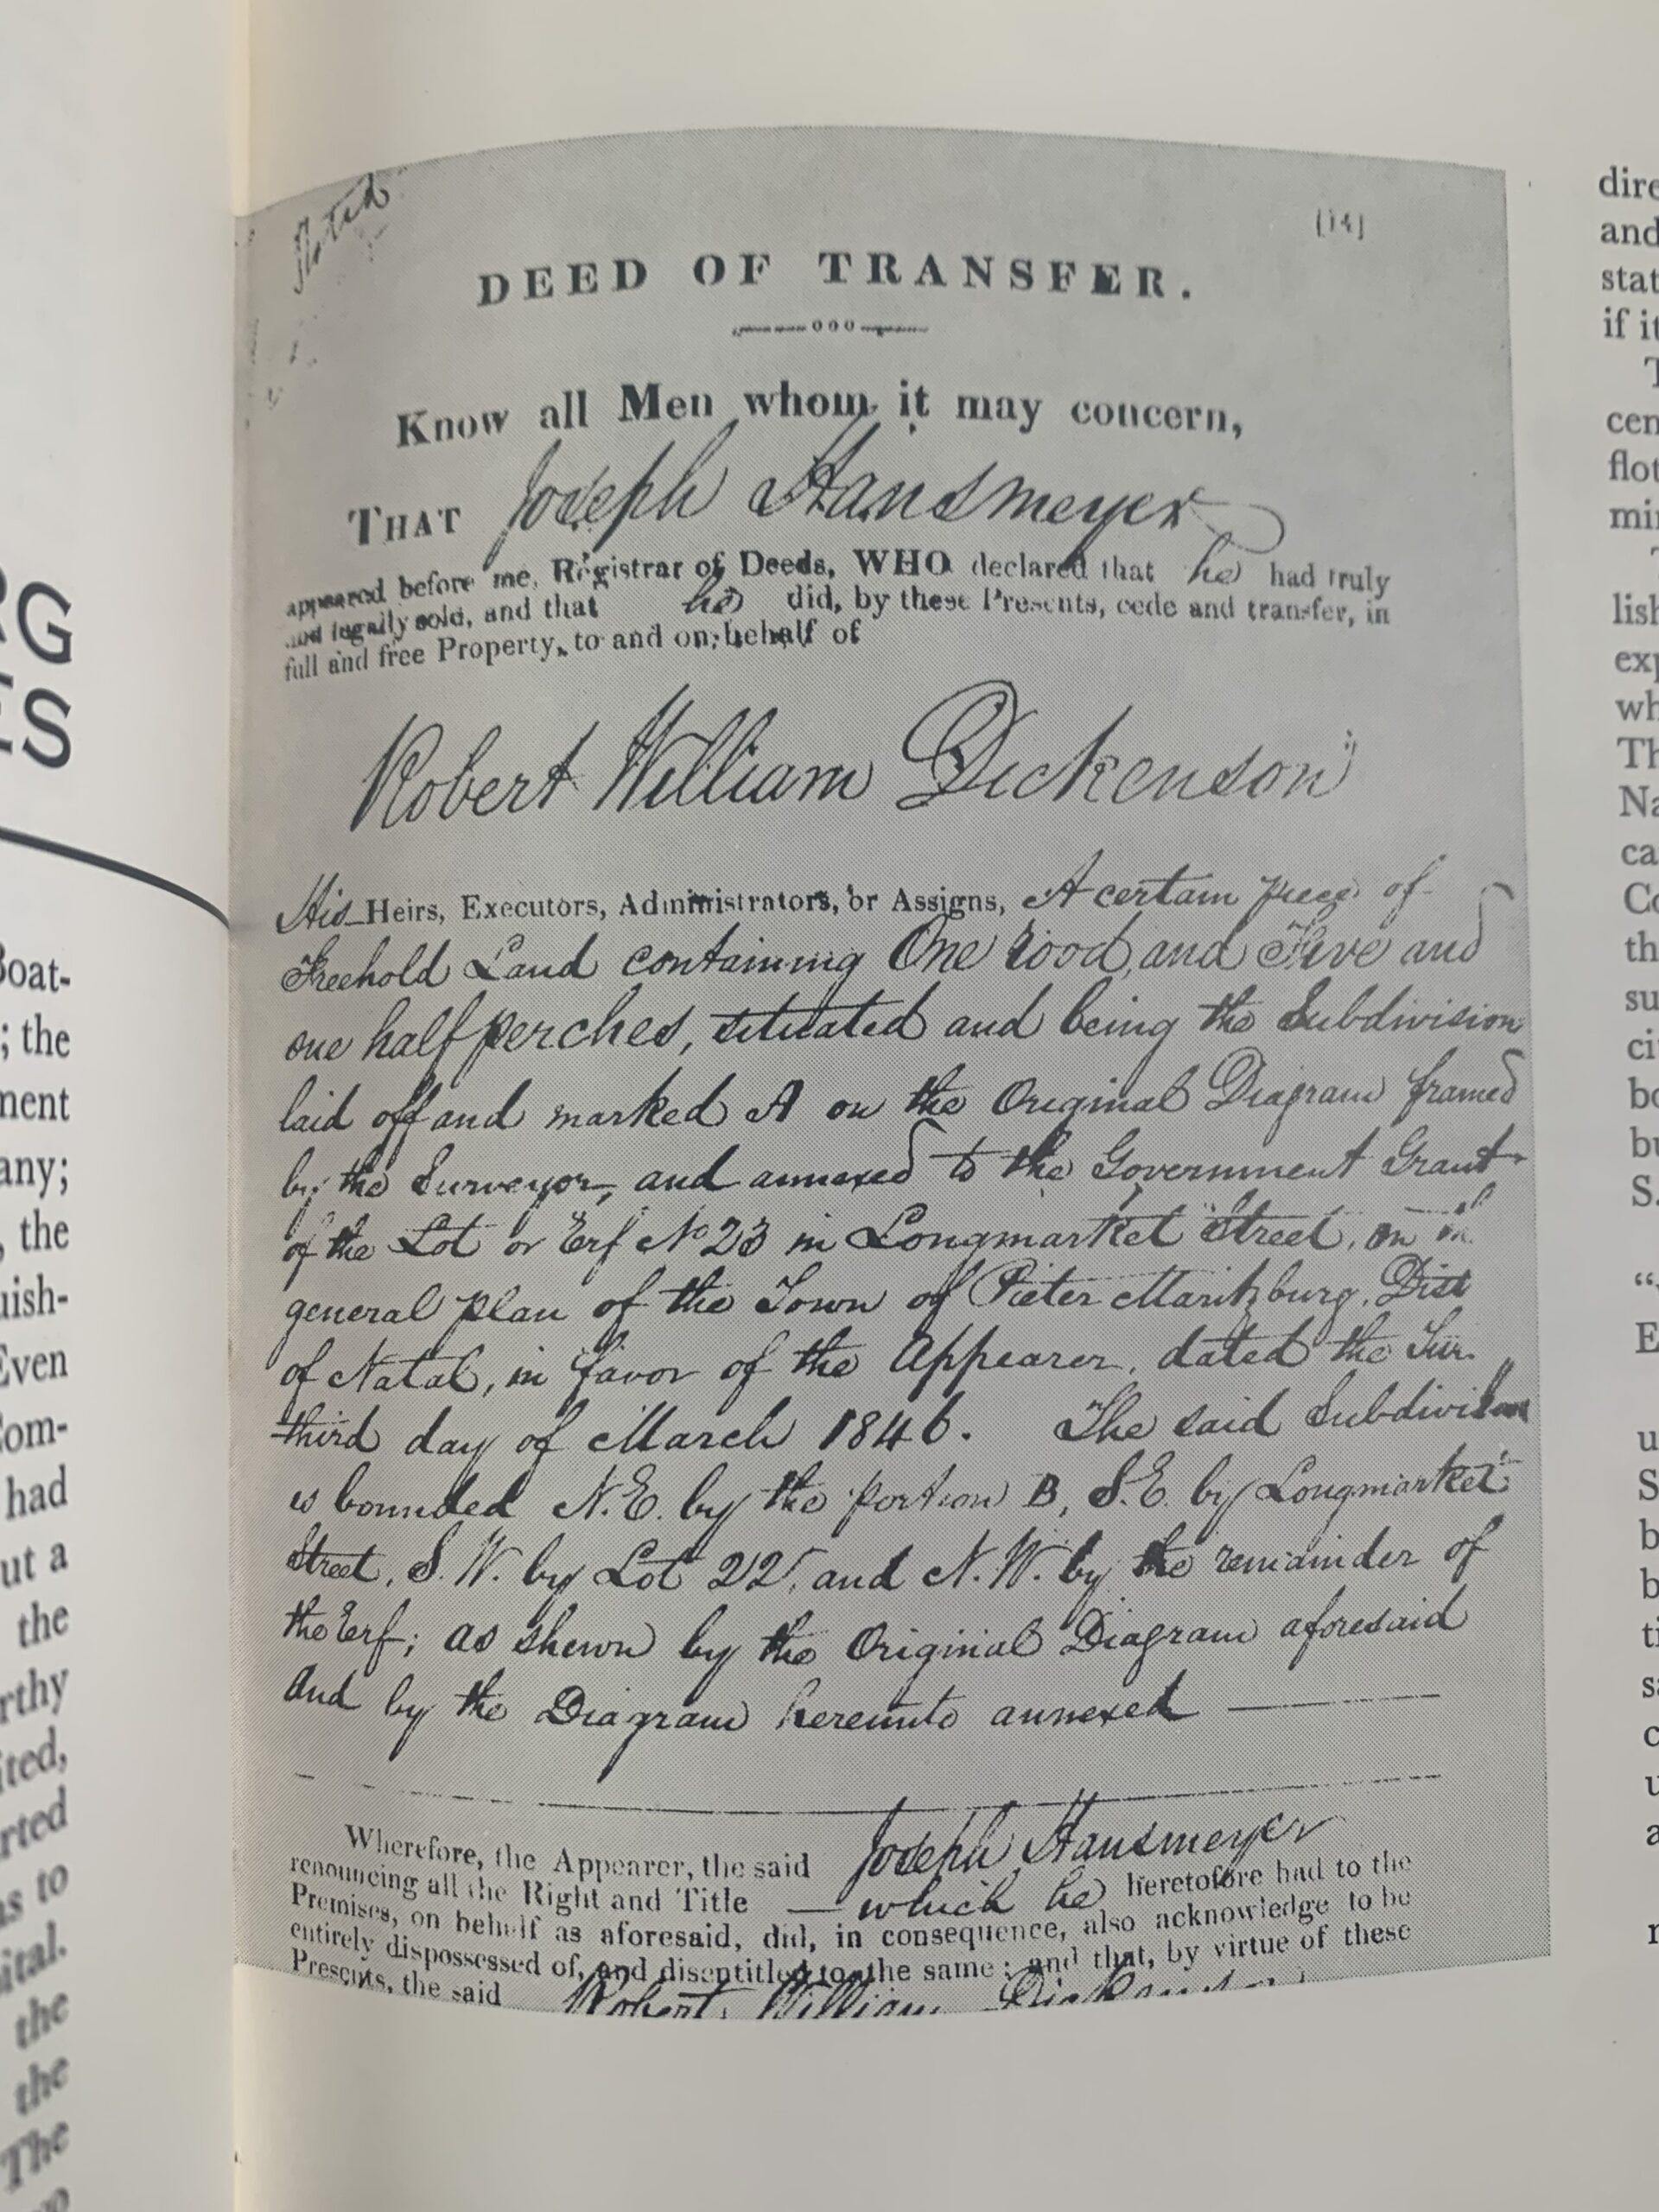 RG
ES
Boat-
; the
ment
any;
, the
uish-
Even
Com-
had
ut a
the
rthy
ited,
rted
as to
ital.
the
the
The
[14]
DEED OF TRANSFER.
Know all Men whom it may concern,
THAT Joseph Hansmeyer
appeared before me, Registrar of Deeds, WHO declared that he had truly
and legally sold, and that he did, by these Presents, cede and transfer, in
full and free Property, to and on behalf of
Robert William Dickenson
His Heirs, Executors, Administrators, or Assigns, A certain piece of
Freehold Land containing One rood, and Five and
one half perches, situated and being the Subdivision
laid off and marked A on the Original Diagram framed
by the Surveyor, and annexed to the Government Grant
of the Lot or Erf No 23 in Longmarket Street, on
general plan of the Town of Pieter Maritzburg, Dist
of Natal, in favor of the Appearer, dated the
third day of March 1846. The said Subdivision
is bounded N.E. by the portion B, S.E. by Longmarket
Street, S.W. by Lot 22, and N.W. by the remainder of
the Erf; as shewn by the Original Diagram aforesaid
And by the Diagram hereunto annexed
Wherefore, the Appearer, the said Joseph Hansmeyer
renouncing all the Right and Title — which he heretofore had to the
Premises, on behalf as aforesaid, did, in consequence, also acknowledge to be
entirely dispossessed of, and disentitled to the same; and that, by virtue of these
Presents, the said Robert William Dickenson
dire
and
stat
if it
T
cen
flot
min
lish
exp
wh
Th
Na
ca
Co
th
su
ci
bo
bu
S.
E
u
S
b
b
ti
sa
c
u
a